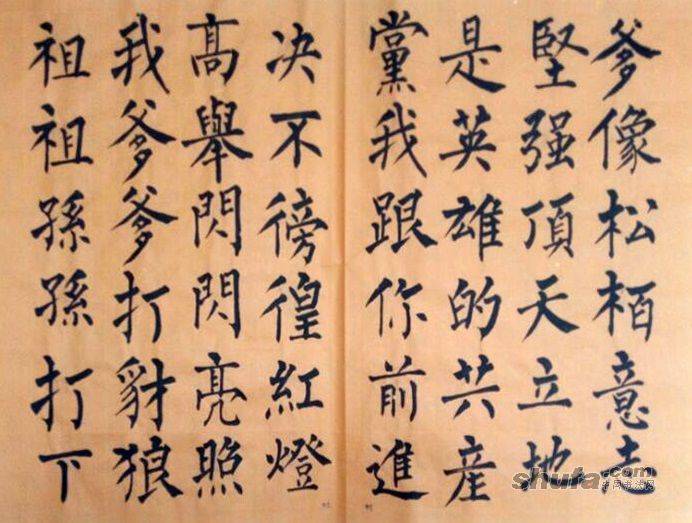 爹像松栢意志
堅强頂天立地
是英雄的共産
黨我跟你前進
决不徬徨紅燈
高舉閃閃亮照
我爹爹打豺狼
祖祖孫孫打下
shufa.com